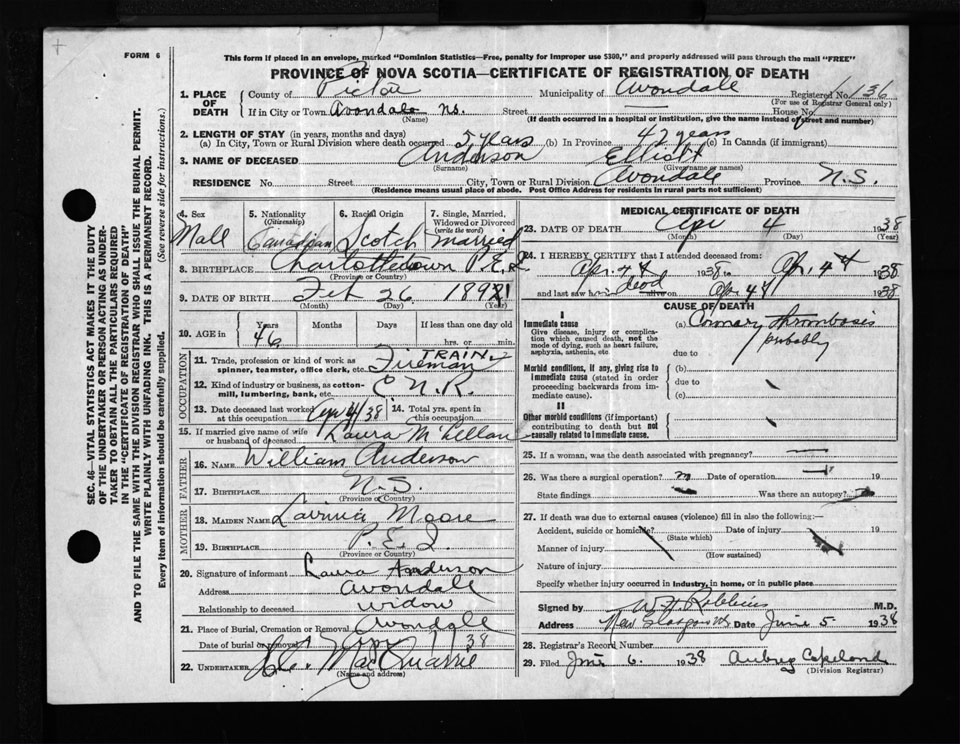 FORM 6
This form if placed in an envelope, marked "Dominion Statistics—Free, penalty for improper use $300," and properly addressed will pass through the mail "FREE"
PROVINCE OF NOVA SCOTIA—CERTIFICATE OF REGISTRATION OF DEATH
SEC. 46—VITAL STATISTICS ACT MAKES IT THE DUTY
OF THE UNDERTAKER OR PERSON ACTING AS UNDER-
TAKER TO OBTAIN ALL THE PARTICULARS REQUIRED
IN THE "CERTIFICATE OF REGISTRATION OF DEATH"
AND TO FILE THE SAME WITH THE DIVISION REGISTRAR WHO SHALL ISSUE THE BURIAL PERMIT.
WRITE PLAINLY WITH UNFADING INK. THIS IS A PERMANENT RECORD.
Every item of information should be carefully supplied. (See reverse side for instructions.)
1. PLACE OF DEATH County of Pictou Municipality of Avondale Registered No. 136
(For use of Registrar General only)
If in City or Town Avondale N.S. Street House No.
(Name) (If death occurred in a hospital or institution, give the name instead of street and number)
2. LENGTH OF STAY (in years, months and days)
(a) In City, Town or Rural Division where death occurred 5 years (b) In Province 47 years (c) In Canada (if immigrant)
3. NAME OF DECEASED Anderson Elliott
(Surname) (Given name or names)
RESIDENCE No. Street City, Town or Rural Division Avondale Province N.S.
(Residence means usual place of abode. Post Office Address for residents in rural parts not sufficient)
4. Sex 5. Nationality (Citizenship) 6. Racial Origin 7. Single, Married, Widowed or Divorced (write the word)
Male Canadian Scotch married
8. BIRTHPLACE Charlottetown P.E.I.
(Province or Country)
9. DATE OF BIRTH Feb 26 189
(Month) (Day) (Year)
10. AGE in Years Months Days If less than one day
46 hrs. or min.
OCCUPATION
11. Trade, profession or kind of work as spinner, teamster, office clerk, etc. TRAIN Fireman
12. Kind of industry or business, as cotton-mill, lumbering, bank, etc. C.N.R.
13. Date deceased last worked at this occupation Apr 4/38 14. Total yrs. spent in this occupation
15. If married give name of wife or husband of deceased Laura McLellan
FATHER
16. NAME William Anderson
17. BIRTHPLACE N.S.
(Province or Country)
MOTHER
18. MAIDEN NAME Lavinia Moore
19. BIRTHPLACE P.E.I.
(Province or Country)
20. Signature of informant Laura Anderson
Address Avondale
Relationship to deceased widow
21. Place of Burial, Cremation or Removal Avondale
Date of burial or removal 38
22. UNDERTAKER MacQuarrie
(Name and address)
MEDICAL CERTIFICATE OF DEATH
23. DATE OF DEATH Apr 4 1938
(Month) (Day)
24. I HEREBY CERTIFY that I attended deceased from:
Apr. 4th 1938 to Apr. 4th 1938
and last saw him dead alive on Apr 4th 1938
CAUSE OF DEATH
I
Immediate cause
Give disease, injury or complication which caused death, not the mode of dying, such as heart failure, asphyxia, asthenia, etc
(a) Coronary Thrombosis
probably
due to
Morbid conditions, if any, giving rise to immediate cause (stated in order proceeding backwards from immediate cause).
(b)
due to
(c)
II
Other morbid conditions (if important) contributing to death but not causally related to immediate cause.
25. If a woman, was the death associated with pregnancy?
26. Was there a surgical operation? Date of operation 19
State findings Was there an autopsy?
27. If death was due to external causes (violence) fill in also the following:—
Accident, suicide or homicide? Date of injury 19
(State which)
Manner of injury
(How sustained)
Nature of injury
Specify whether injury occurred in industry, in home, or in public place
Signed by W.H. Robbins M.D.
Address New Glasgow N.S. Date June 5 1938
28. Registrar's Record Number
29. Filed June 6. 1938 Aubrey Copeland
(Division Registrar)